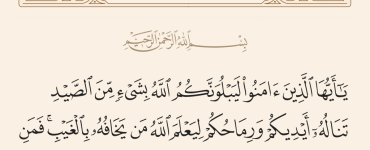 بِسْمِ ٱللَّهِ ٱلرَّحْمَٰنِ ٱلرَّحِيمِ
يَٰٓأَيُّهَا ٱلَّذِينَ ءَامَنُوا۟ لَيَبْلُوَنَّكُمُ ٱللَّهُ بِشَىْءٍ مِّنَ ٱلصَّيْدِ
تَنَالُهُۥٓ أَيْدِيكُمْ وَرِمَاحُكُمْ لِيَعْلَمَ ٱللَّهُ مَن يَخَافُهُۥ بِٱلْغَيْبِ ۚ فَمَنِ